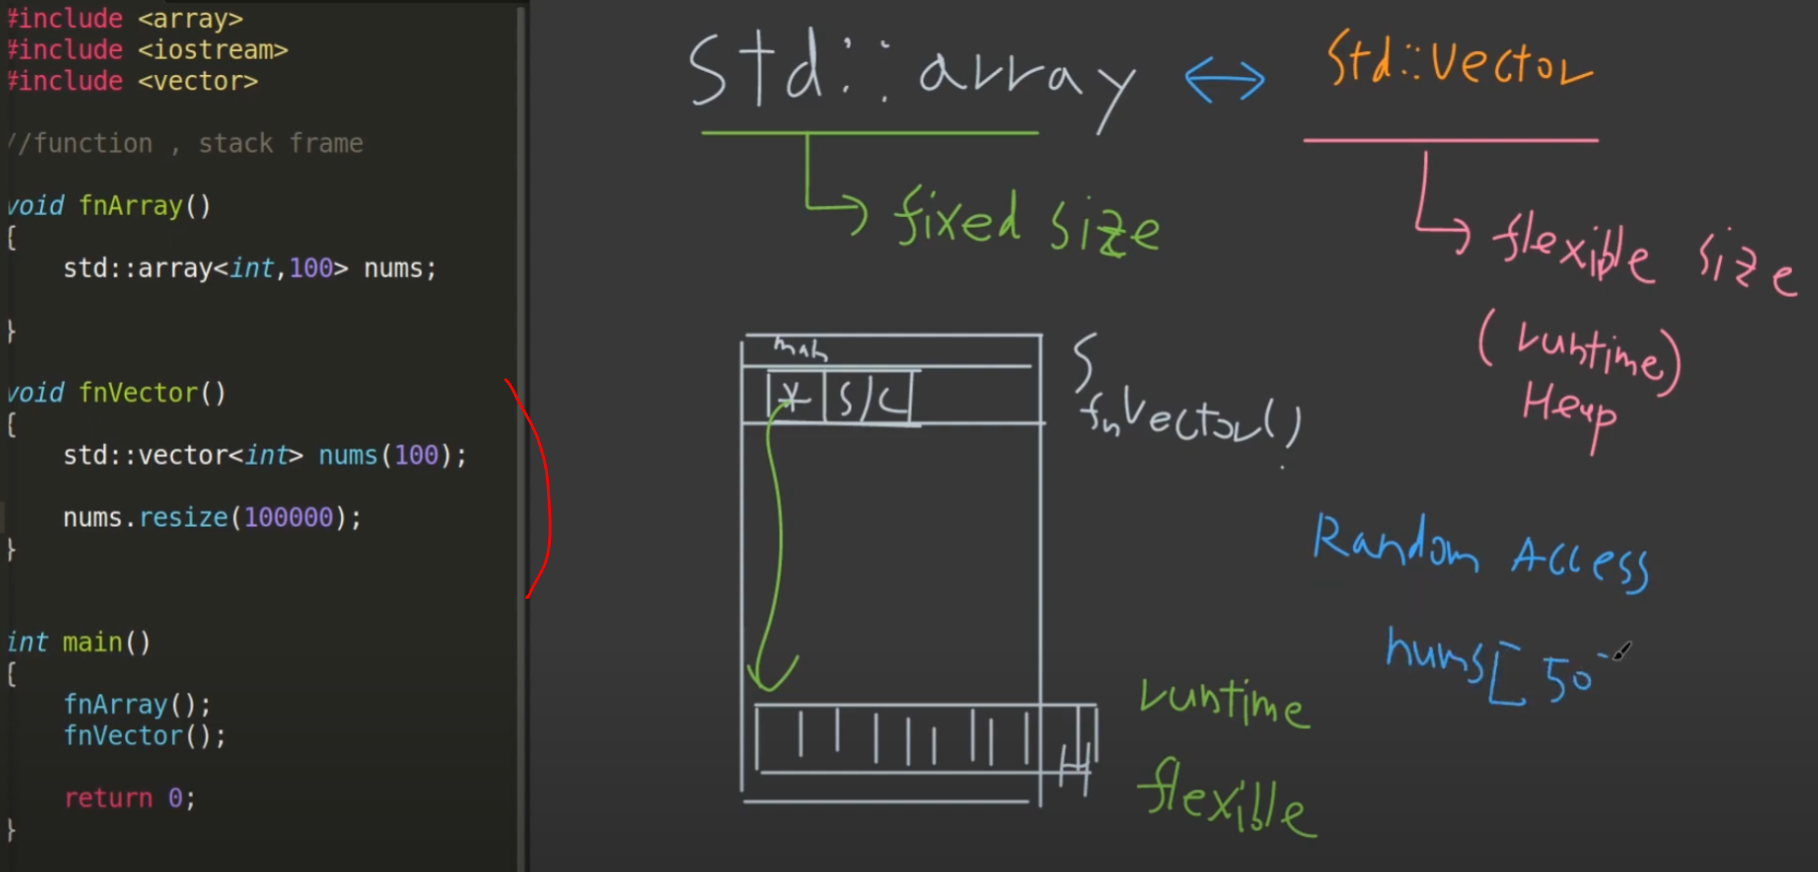 #include <array>
#include <iostream>
#include <vector>
//function , stack frame
void fnArray()
{
std::array<int,100> nums;
}
void fnVector()
{
std::vector<int> nums(100);
nums.resize(100000);
}
int main()
{
fnArray();
fnVector();
return 0;
}
std::array ↔ std::vector
fixed size
flexible size
(runtime)
Heap
main
S
* S/C
fnVector()
Random Access
nums[50
runtime
H
flexible